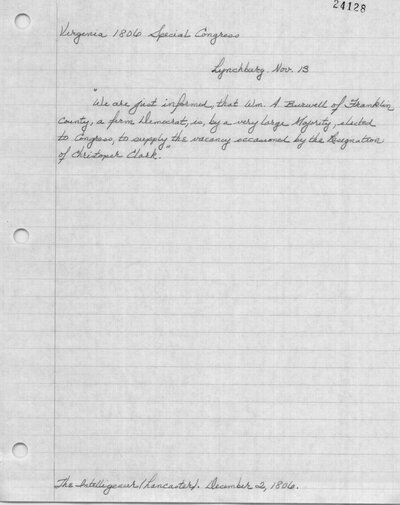 24128
Virginia 1806 Special Congress
Lynchburg, Nov. 13
"We are just informed, that Wm. A. Burwell of Franklin
County, a firm Democrat, is, by a very large Majority, elected
to Congress, to supply the vacancy occasioned by the Resignation
of Christoper Clark."
The Intelligencer (Lancaster). December 2, 1806.